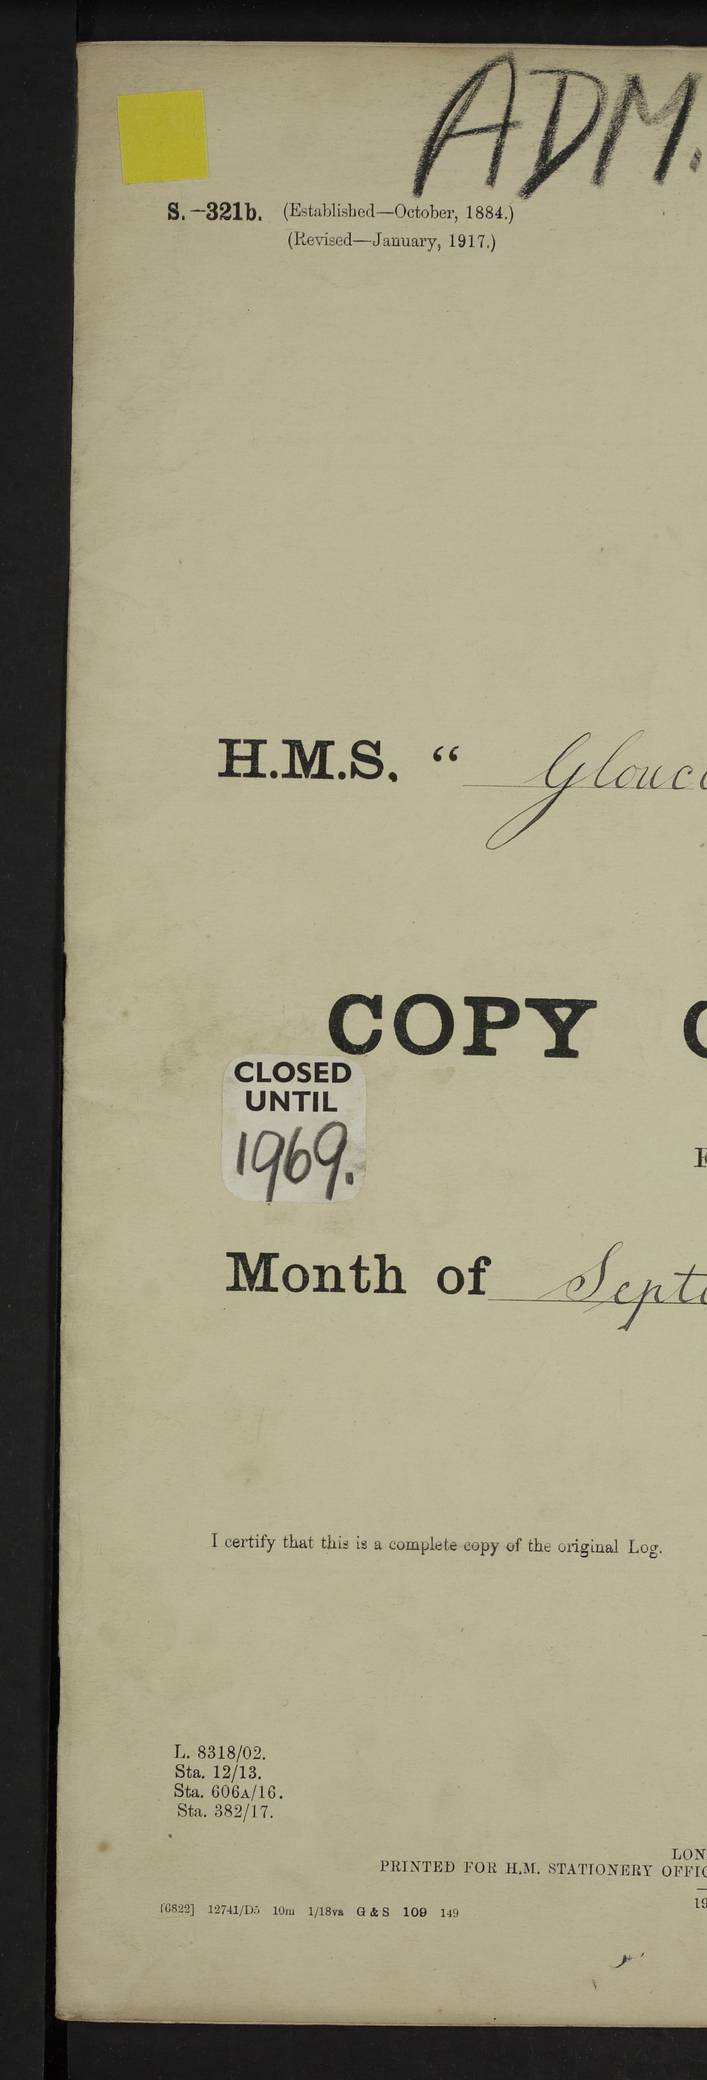 ADM.
S.—321b. (Established—October, 1884.)
(Revised—January, 1917.)
H.M.S. “ Glouc
COPY
CLOSED
UNTIL
1969.
Month of Septe
I certify that this is a complete copy of the original Log.
L. 8318/02.
Sta. 12/13.
Sta. 606A/16.
Sta. 382/17.
LON
PRINTED FOR H.M. STATIONERY OFFIC
19
[6822] 12741/D5 10m 1/18va G & S 109 149